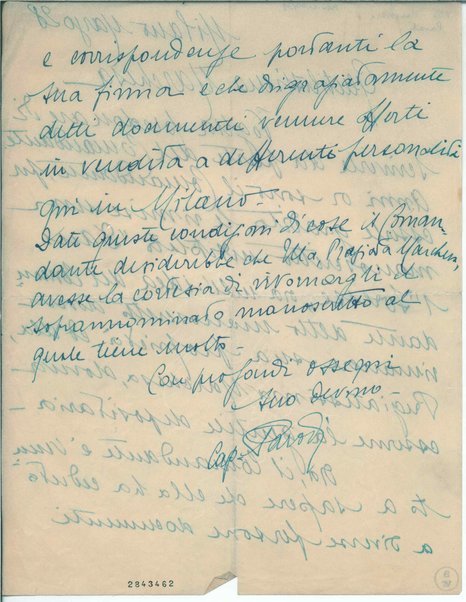 e corrispondenze portanti la
sua firma e che disgraziatamente
detti documenti vennero offerti
in vendita a differenti personalità
qui in Milano -
Dati queste condizioni di cose il Coman-
dante desidererebbe che Ella
avesse la cortesia di ritornargli il
soprannominato manoscritto al
quale tiene molto -
Con profondi ossequi
Suo devmo
Cap:
2843462